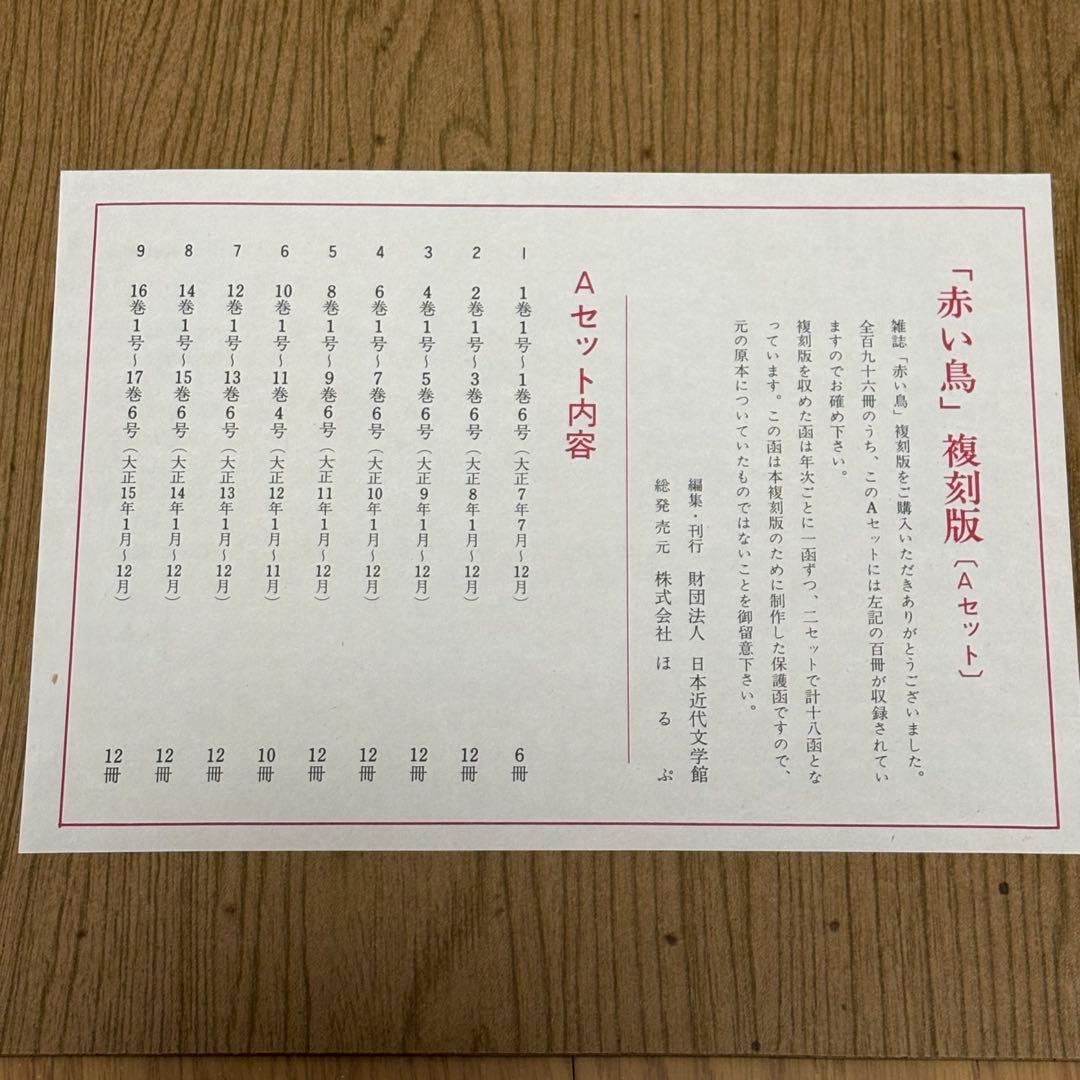 「赤い鳥」複刻版〔Aセット〕
雑誌「赤い鳥」複刻版をご購入いただきありがとうございました。
全百九十六冊のうち、このAセットには左記の百冊が収録されてい
ますのでお確め下さい。
複刻版を収めた函は年次ごとに一函ずつ、二セットで計十八函とな
っています。この函は本複刻版のために制作した保護函ですので、
元の原本についていたものではないことを御留意下さい。
編集・刊行 財団法人 日本近代文学館
総発売元 株式会社 ほるぷ
Aセット内容
1 1巻1号~1巻6号(大正7年7月~12月) 6冊
2 2巻1号~3巻6号(大正8年1月~12月) 12冊
3 4巻1号~5巻6号(大正9年1月~12月) 12冊
4 6巻1号~7巻6号(大正10年1月~12月) 12冊
5 8巻1号~9巻6号(大正11年1月~12月) 12冊
6 10巻1号~11巻4号(大正12年1月~11月) 10冊
7 12巻1号~13巻6号(大正13年1月~12月) 12冊
8 14巻1号~15巻6号(大正14年1月~12月) 12冊
9 16巻1号~17巻6号(大正15年1月~12月) 12冊